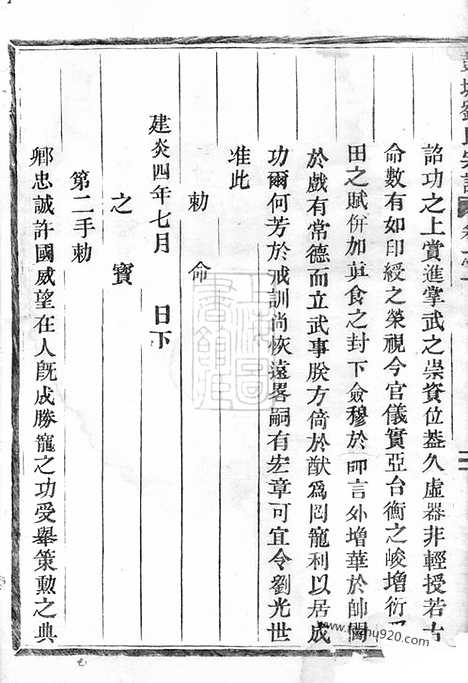 詔功之上賞進掌武之崇資位葢久虛器非輕授若古
命數有如印綬之榮視今官儀實亞台衡之峻增衍
田之賦併加眞食之封下僉穆於師言外增華於帥閫
於戲有常德而立武事朕方倚於猷爲罔寵利以居成
功爾何芳於戒訓尚恢遠畧嗣有宏章可宜令劉光世
准此
勅命
建炎四年七月 日下
之寶
第二手勅
卿忠誠許國威望在人旣成勝寵之功受舉策勲之典
彭城劉氏宗譜
上海圖書館藏